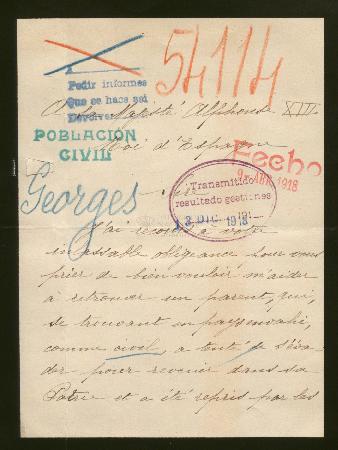 54114
Pedir informes
Que se hace así
Devolver
A Sa Majesté Alphonse XIII
POBLACIÓN
CIVIL
Roi d'Espagne
Fecho
9 ABR. 1918
Georges
Sire
Transmitido
resultado gestiones
13 DIC 1918
J'ai recours à votre
inlassable obligeance pour vous
prier de bien vouloir m'aider
à retrouver un parent, qui,
se trouvant en pays envahi,
comme civil a tenté de s'éva-
der pour revenir dans sa
Patrie et a été repris par les